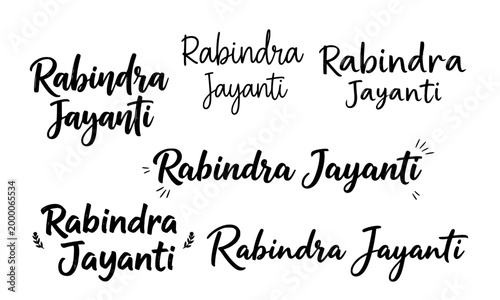 Rabindra
Jayanti
Rabindra
Jayanti
Rabindra
Jayanti
Rabindra Jayanti
Rabindra
Jayanti
Rabindra Jayanti
Adobe Stock | #2000065534